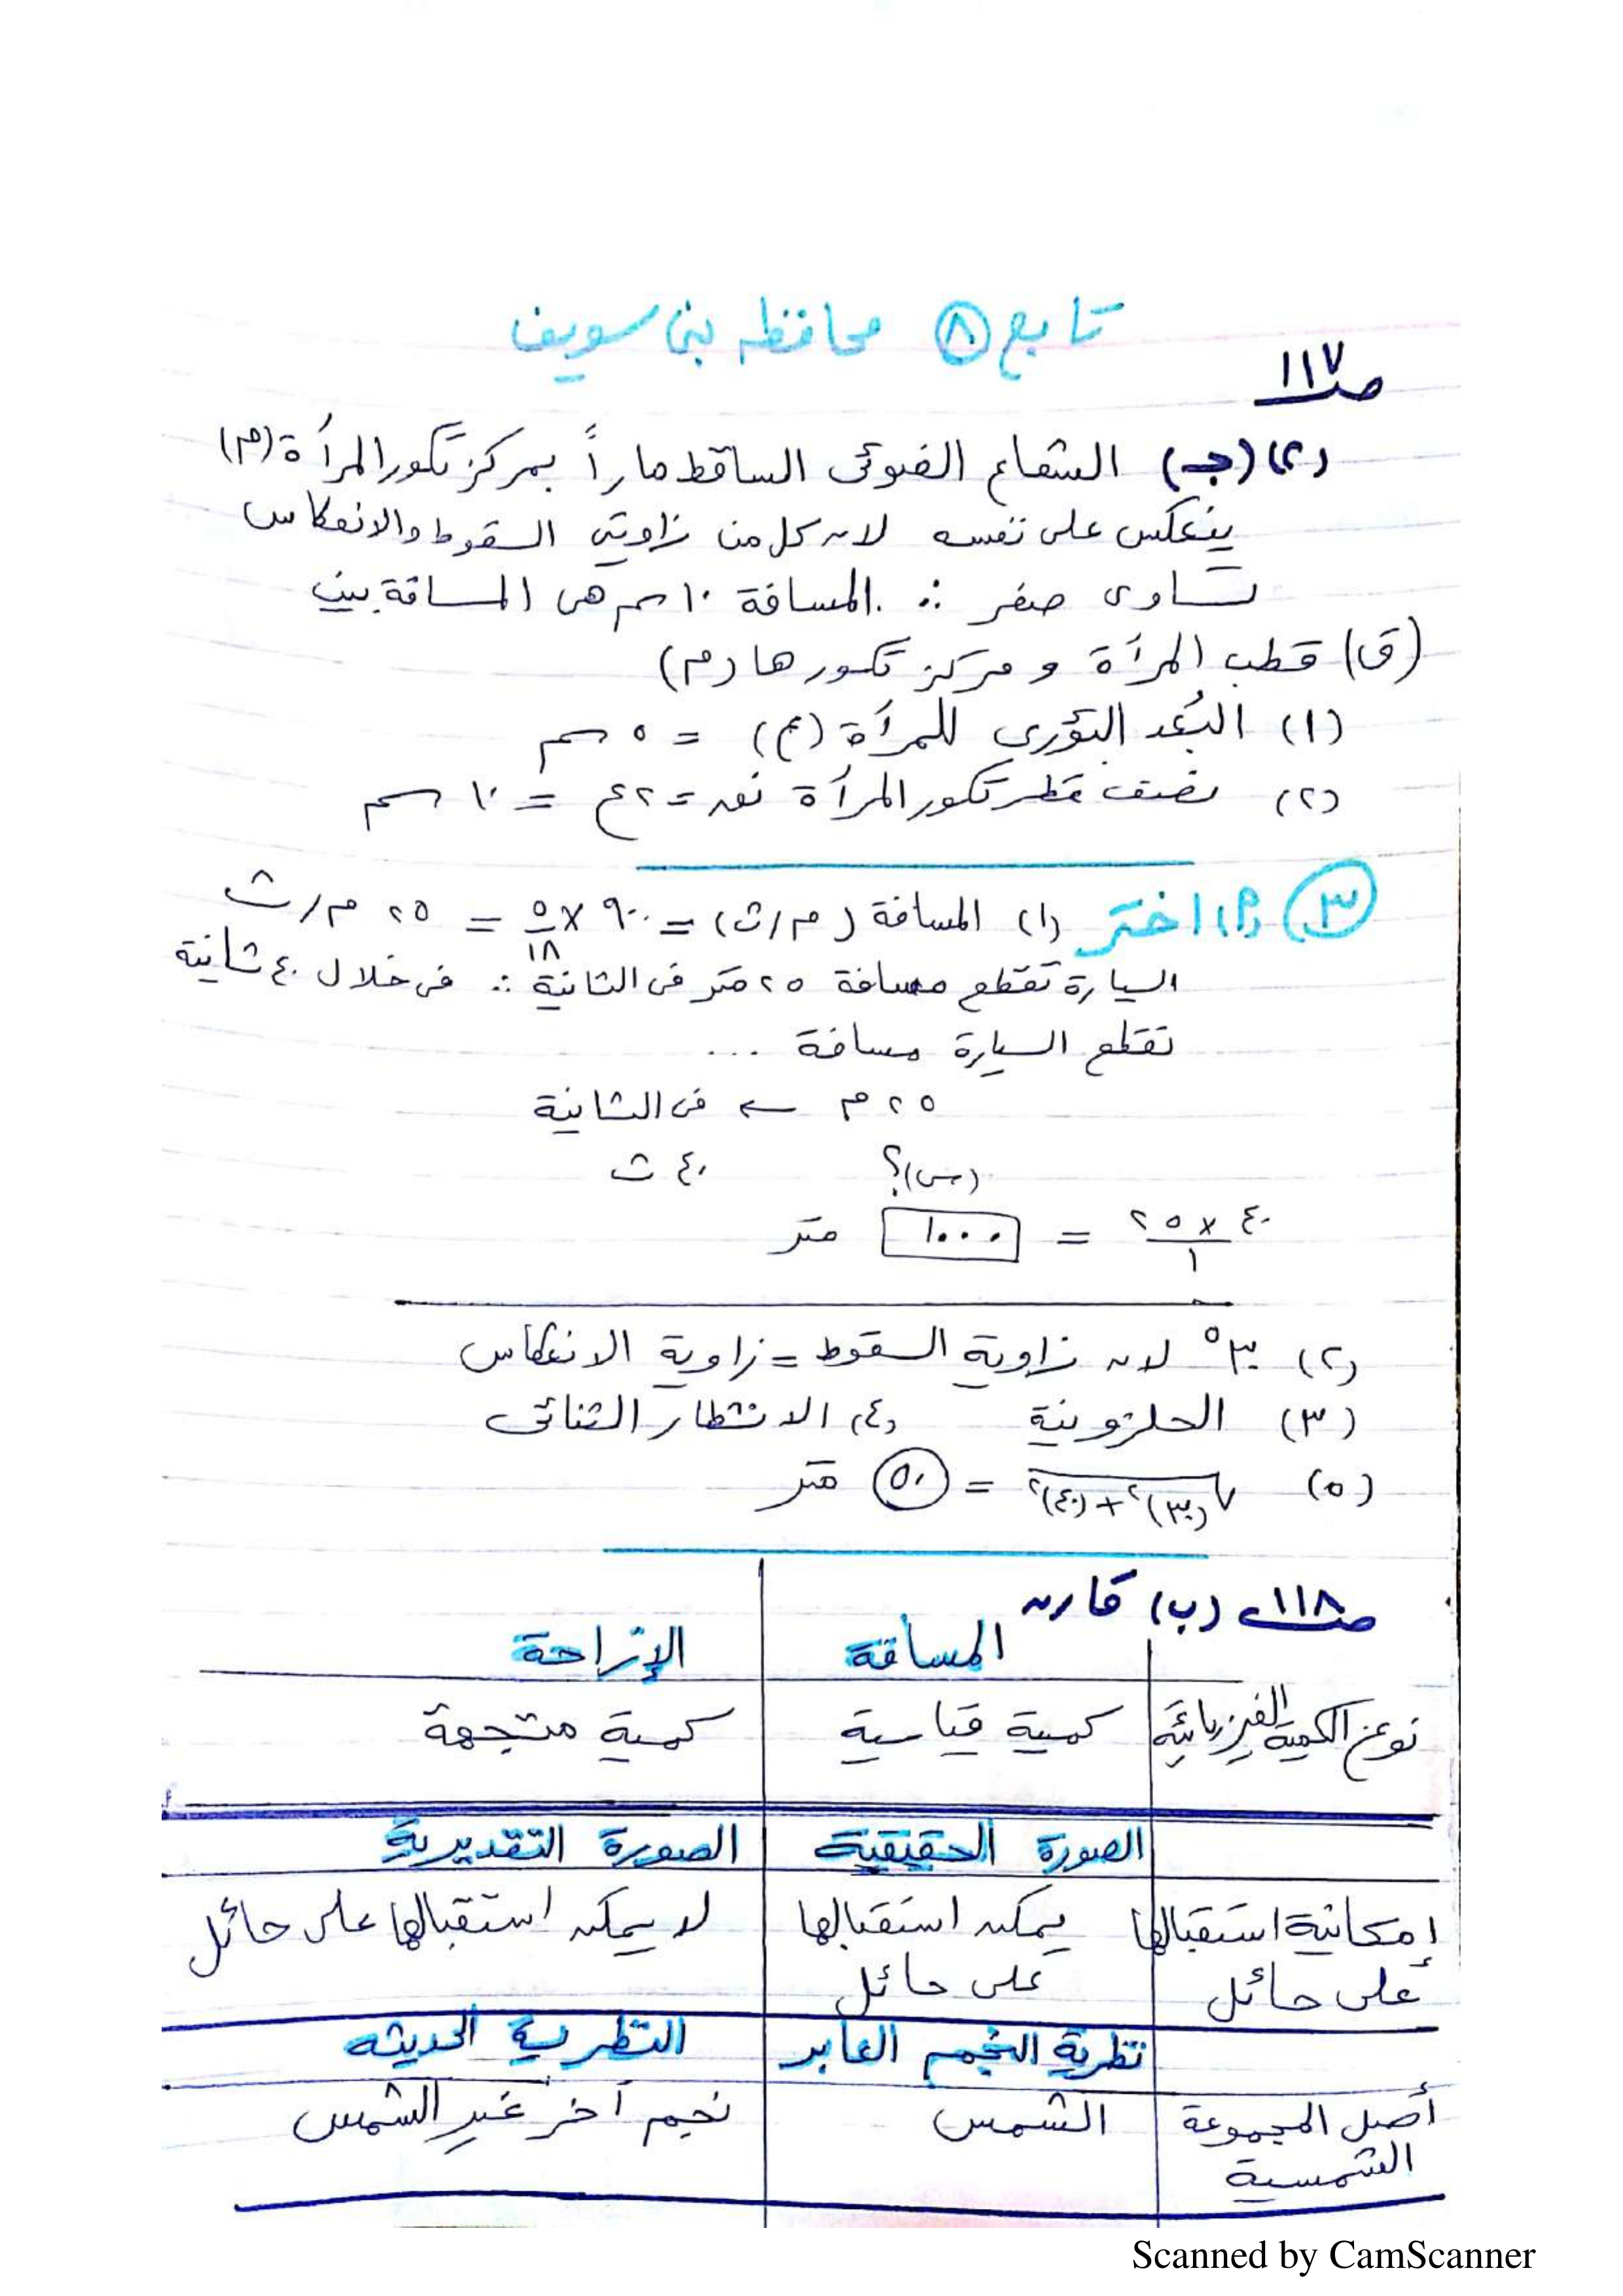 تابع ٨ محافظه بنى سويف
صـ ١١٧
(٢) (جـ) الشعاع الضوئى الساقط ماراً بمركز تكور المرأة (م)
ينعكس على نفسه لان كل من زاويتى السقوط والانعكاس
تساوى صفر ∴ المسافة ١٠ سم هى المسافة بين
(ق) قطب المرآة و مركز تكورها (م)
(١) البُعد البؤرى للمرأة (ع) = ٥ سم
(٢) نصف قطر تكور المرأة نق = ٢ع = ١٠ سم
٣ (أ) اختر (١) المسافة (م/ث) = ٩٠ × ٥/١٨ = ٢٥ م/ث
السيارة تقطع مسافة ٢٥ متر فى الثانية ∴ فى خلال ٤٠ ثانية
تقطع السيارة مسافة ...
٢٥ م ← فى الثانية
(س)؟ ٤٠ ث
٤٠ × ٢٥ / ١ = ١٠٠٠ متر
(٢) ٣٠° لان زاوية السقوط = زاوية الانعكاس
(٣) الحلزونية (٤) الانشطار الثنائى
(٥) √(٣٠)² + (٤٠)² = ٥٠ متر
صـ ١١٨ (ب) قارن
المسافة الإزاحة
نوع الكمية الفيزيائية كمية قياسية كمية متجهة
الصورة الحقيقية الصورة التقديرية
إمكانية استقبالها يمكن استقبالها لا يمكن استقبالها على حائل
على حائل على حائل
نظرية النجم العابر النظرية الحديثه
أصل المجموعة الشمس نجم آخر غير الشمس
الشمسية
Scanned by CamScanner